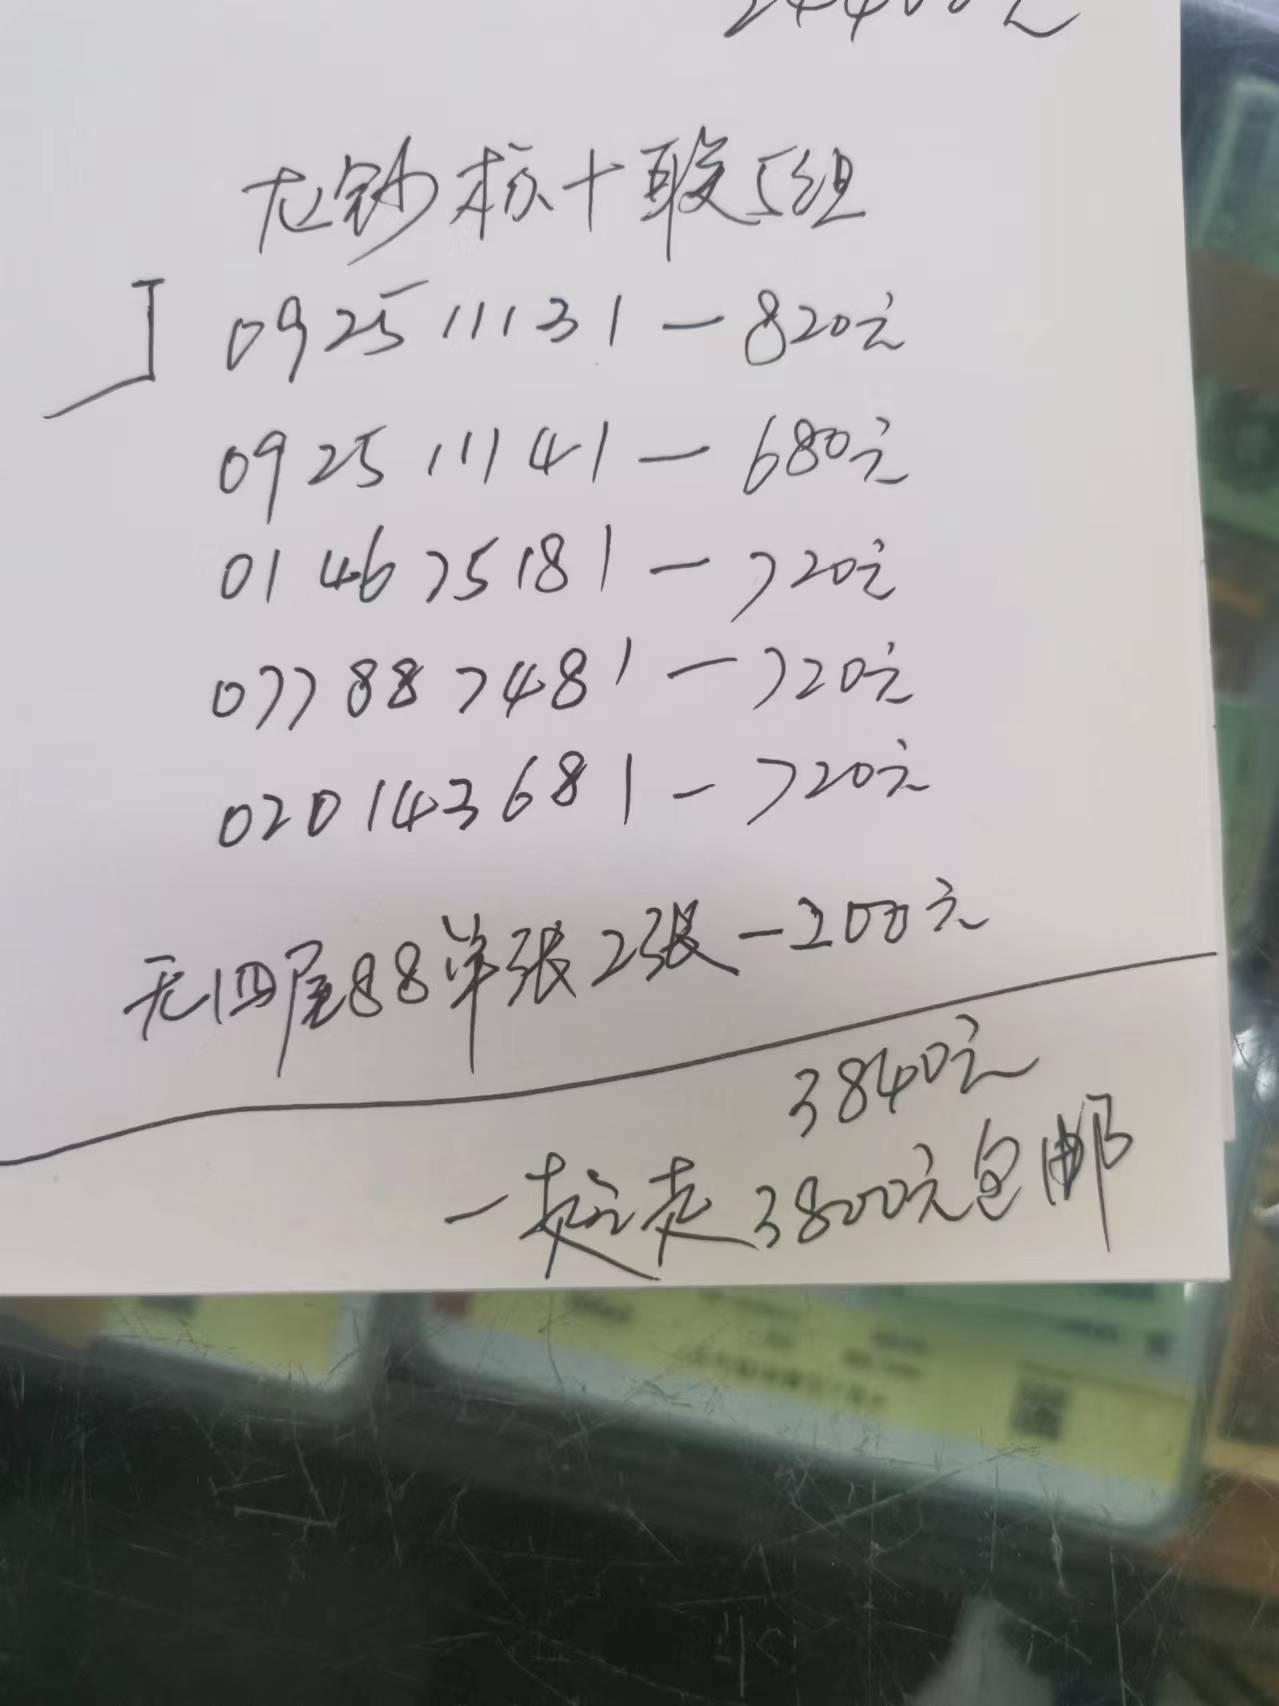 24400元
龙钞标十联5组
J 092511131一820元
092511141一680元
014675181一720元
077887481一720元
020143681一720元
无四尾88单张2张一200元
3840元
一起走3800元包邮